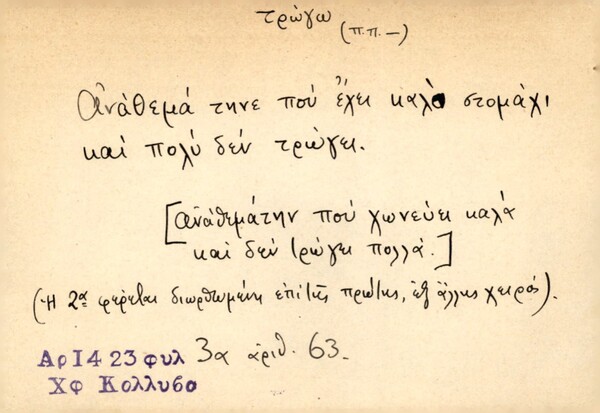 τρώγω
(π.π. —)
Ἀνάθεμά τηνε πού ἔχει καλὸ στομάχι
καί πολύ δέν τρώγει.
[ἀνάθεμάτην πού χωνεύει καλά
καί δέν τρώγει πολλά.]
(Ἡ 2α φέρεται διωρθωμένη ἐπί τῆς πρώτης, ἐξ ἄλλης χειρός).
Αρ 1423 φυλ 3α ἀριθ. 63.
Χφ Κολλυβο